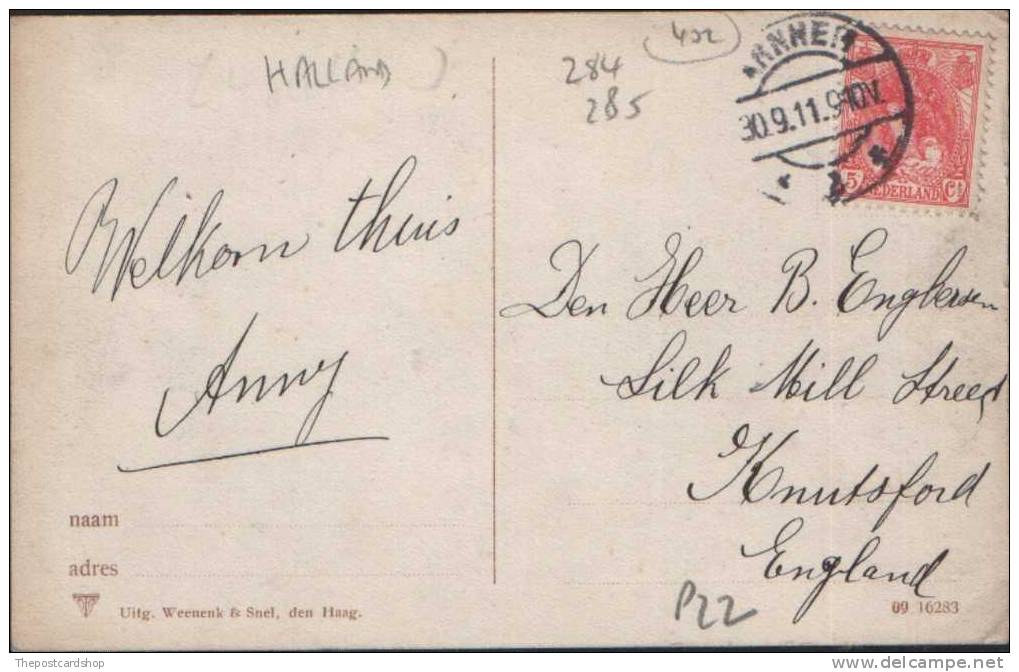 HALLAND
284
285
402
ARNHEM
30.9.11.9-10V.
5 Ct
NEDERLAND
Welkom thuis
Anny
Den Heer B. Englersen
Silk Mill Street
Knutsford
England
naam
adres
Uitg. Weenenk & Snel, den Haag.
P22
09 16283
Thepostcardshop
delcampe.net